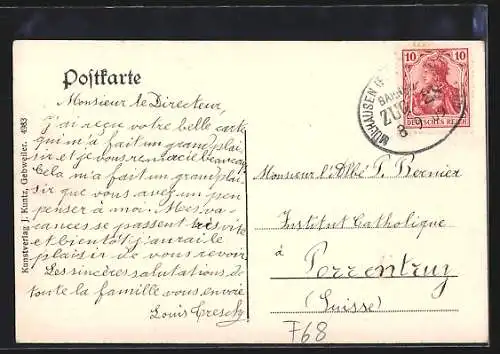 Postkarte
Monsieur le Directeur,
J'ai reçu votre belle carte
qui m'a fait un grand plai-
sir et je vous remercie beaucoup.
Cela m'a fait un grand plai-
sir que vous avez un peu
penser à moi. Mes va-
cances se passent très vite
et bientôt j'aurai le
plaisir de vous revoir
Les sincères salutations de
toute la famille vous envoie
Louis
Kunstverlag J. Kuntz, Gebweiler. 4983
10 10
DEUTSCHES REICH
MÜLHAUSEN
BAHNPOST
ZUG
Monsieur l'Abbé P. Bernier
Institut Catholique
à
Porrentruy
(Suisse)
F68